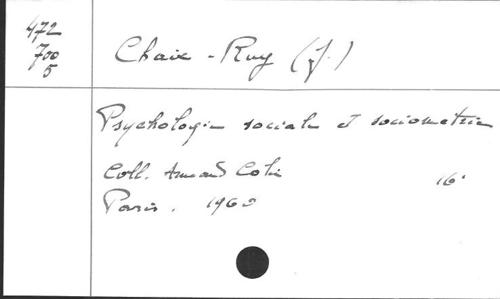 472
700
5
Chaix-Ruy (J.)
Psychologie sociale et sociométrie
Coll. Armand Colin
16°
Paris. 1960